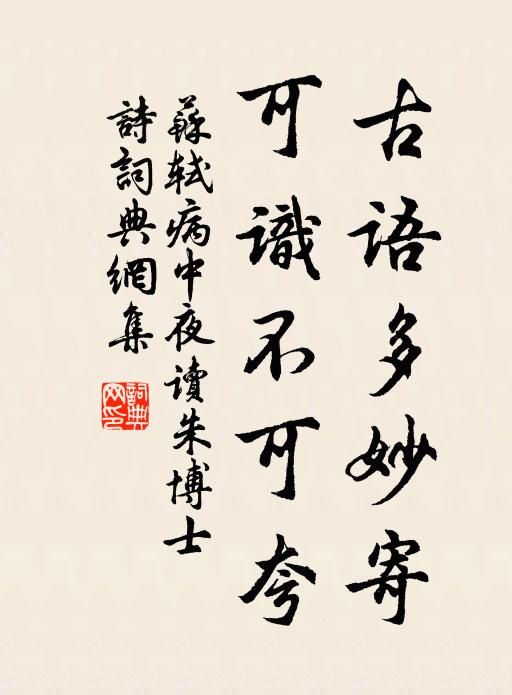 古語多妙寄
可識不可夸
蘇軾病中夜讀朱博士
詩詞典網集
詞典網印